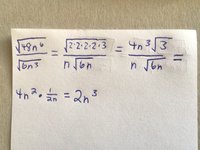 √48n⁶ / √6n³ = √2·2·2·2·3 / n√6n = 4n³√3 / n√6n =
4n² · 1/2n = 2n³